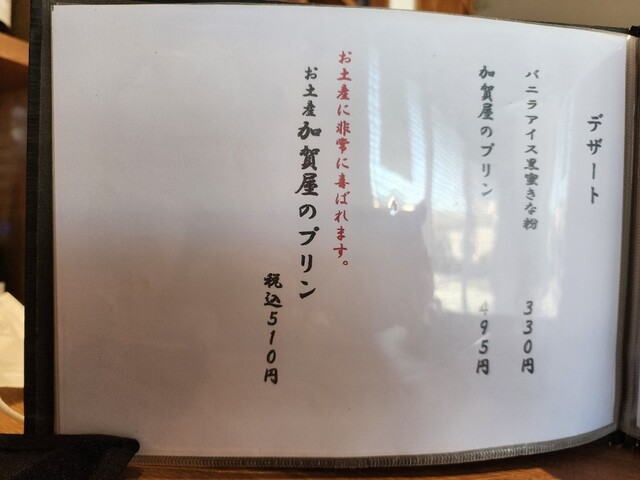 デザート
バニラアイス黒蜜きな粉 330円
加賀屋のプリン 495円
お土産に非常に喜ばれます。
お土産 加賀屋のプリン
税込510円